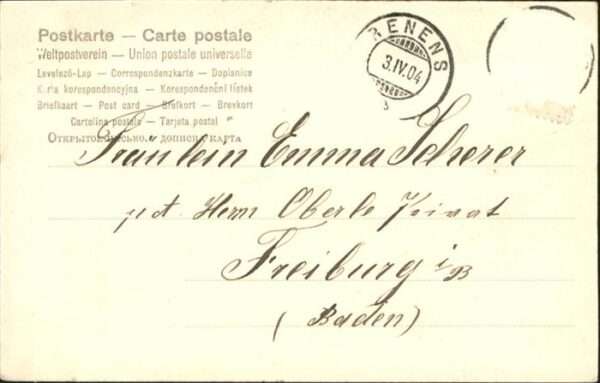 Postkarte — Carte postale
Weltpostverein — Union postale universelle
Levelező-Lap — Correspondenzkarte — Dopisnice
Karta korespondencyjna — Korespondenční lístek
Briefkaart — Post card — Brefkort — Brevkort
Cartolina postale — Tarjeta postal
RENENS
3.IV.04
Fräulein Emma Scherer
Herrn Oberle Privat
Freiburg i/B
(Baden)